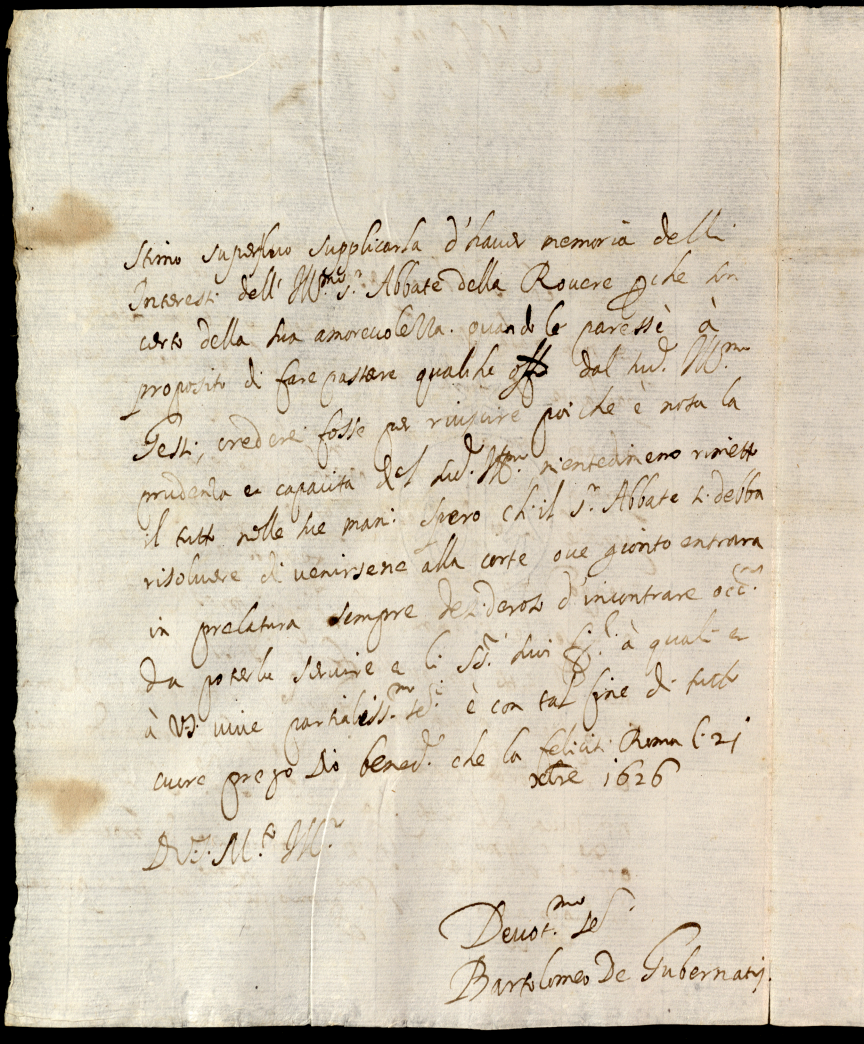 Stimo superfluo supplicarla d'hauer memoria delli
Interessi dell' Ill.mo s.r Abbate della Rouere ꝑche son
certo della sua amoreuolezza. quando le paresse à
proposito di fare passare qualche offo dal sud.o Ill.mo
Gessi, crederei fosse per riuscire poi che è nota la
prudenza et capacità del sud.o Ill.mo nientedimeno rimetto
il tutto nelle sue mani. Spero ch'il s.r Abbate si debba
risoluere di uenirsene alla corte oue gionto entrara
in prelatura sempre desideroso d'incontrare occ.ni
da poterla seruire e li SS.ri suoi fig.li à quali et
à VS. uiue partialiss.mo se.re è con tal fine di tutto
cuore prego Dio bened.o che la feliciti Roma li 21
xbre 1626
D VS. M.to Ill.re
Deuot.mo se.r
Bartolomeo De Gubernatis